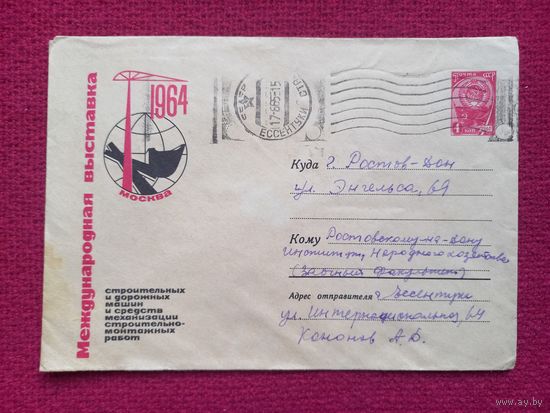 Международная выставка
1964
МОСКВА
строительных
и дорожных
машин
и средств
механизации
строительно-
монтажных
работ
17-865-15
ЕССЕНТУКИ СТР
ПОЧТА СССР
4 КОП
Куда г. Ростов-Дон
ул. Энгельса, 69
Кому Ростовскому-на-Дону
институт Народного хозяйства
(Заочный факультет)
Адрес отправителя г Ессентуки
ул. Интернациональная 64
Кононов А.
ay.by